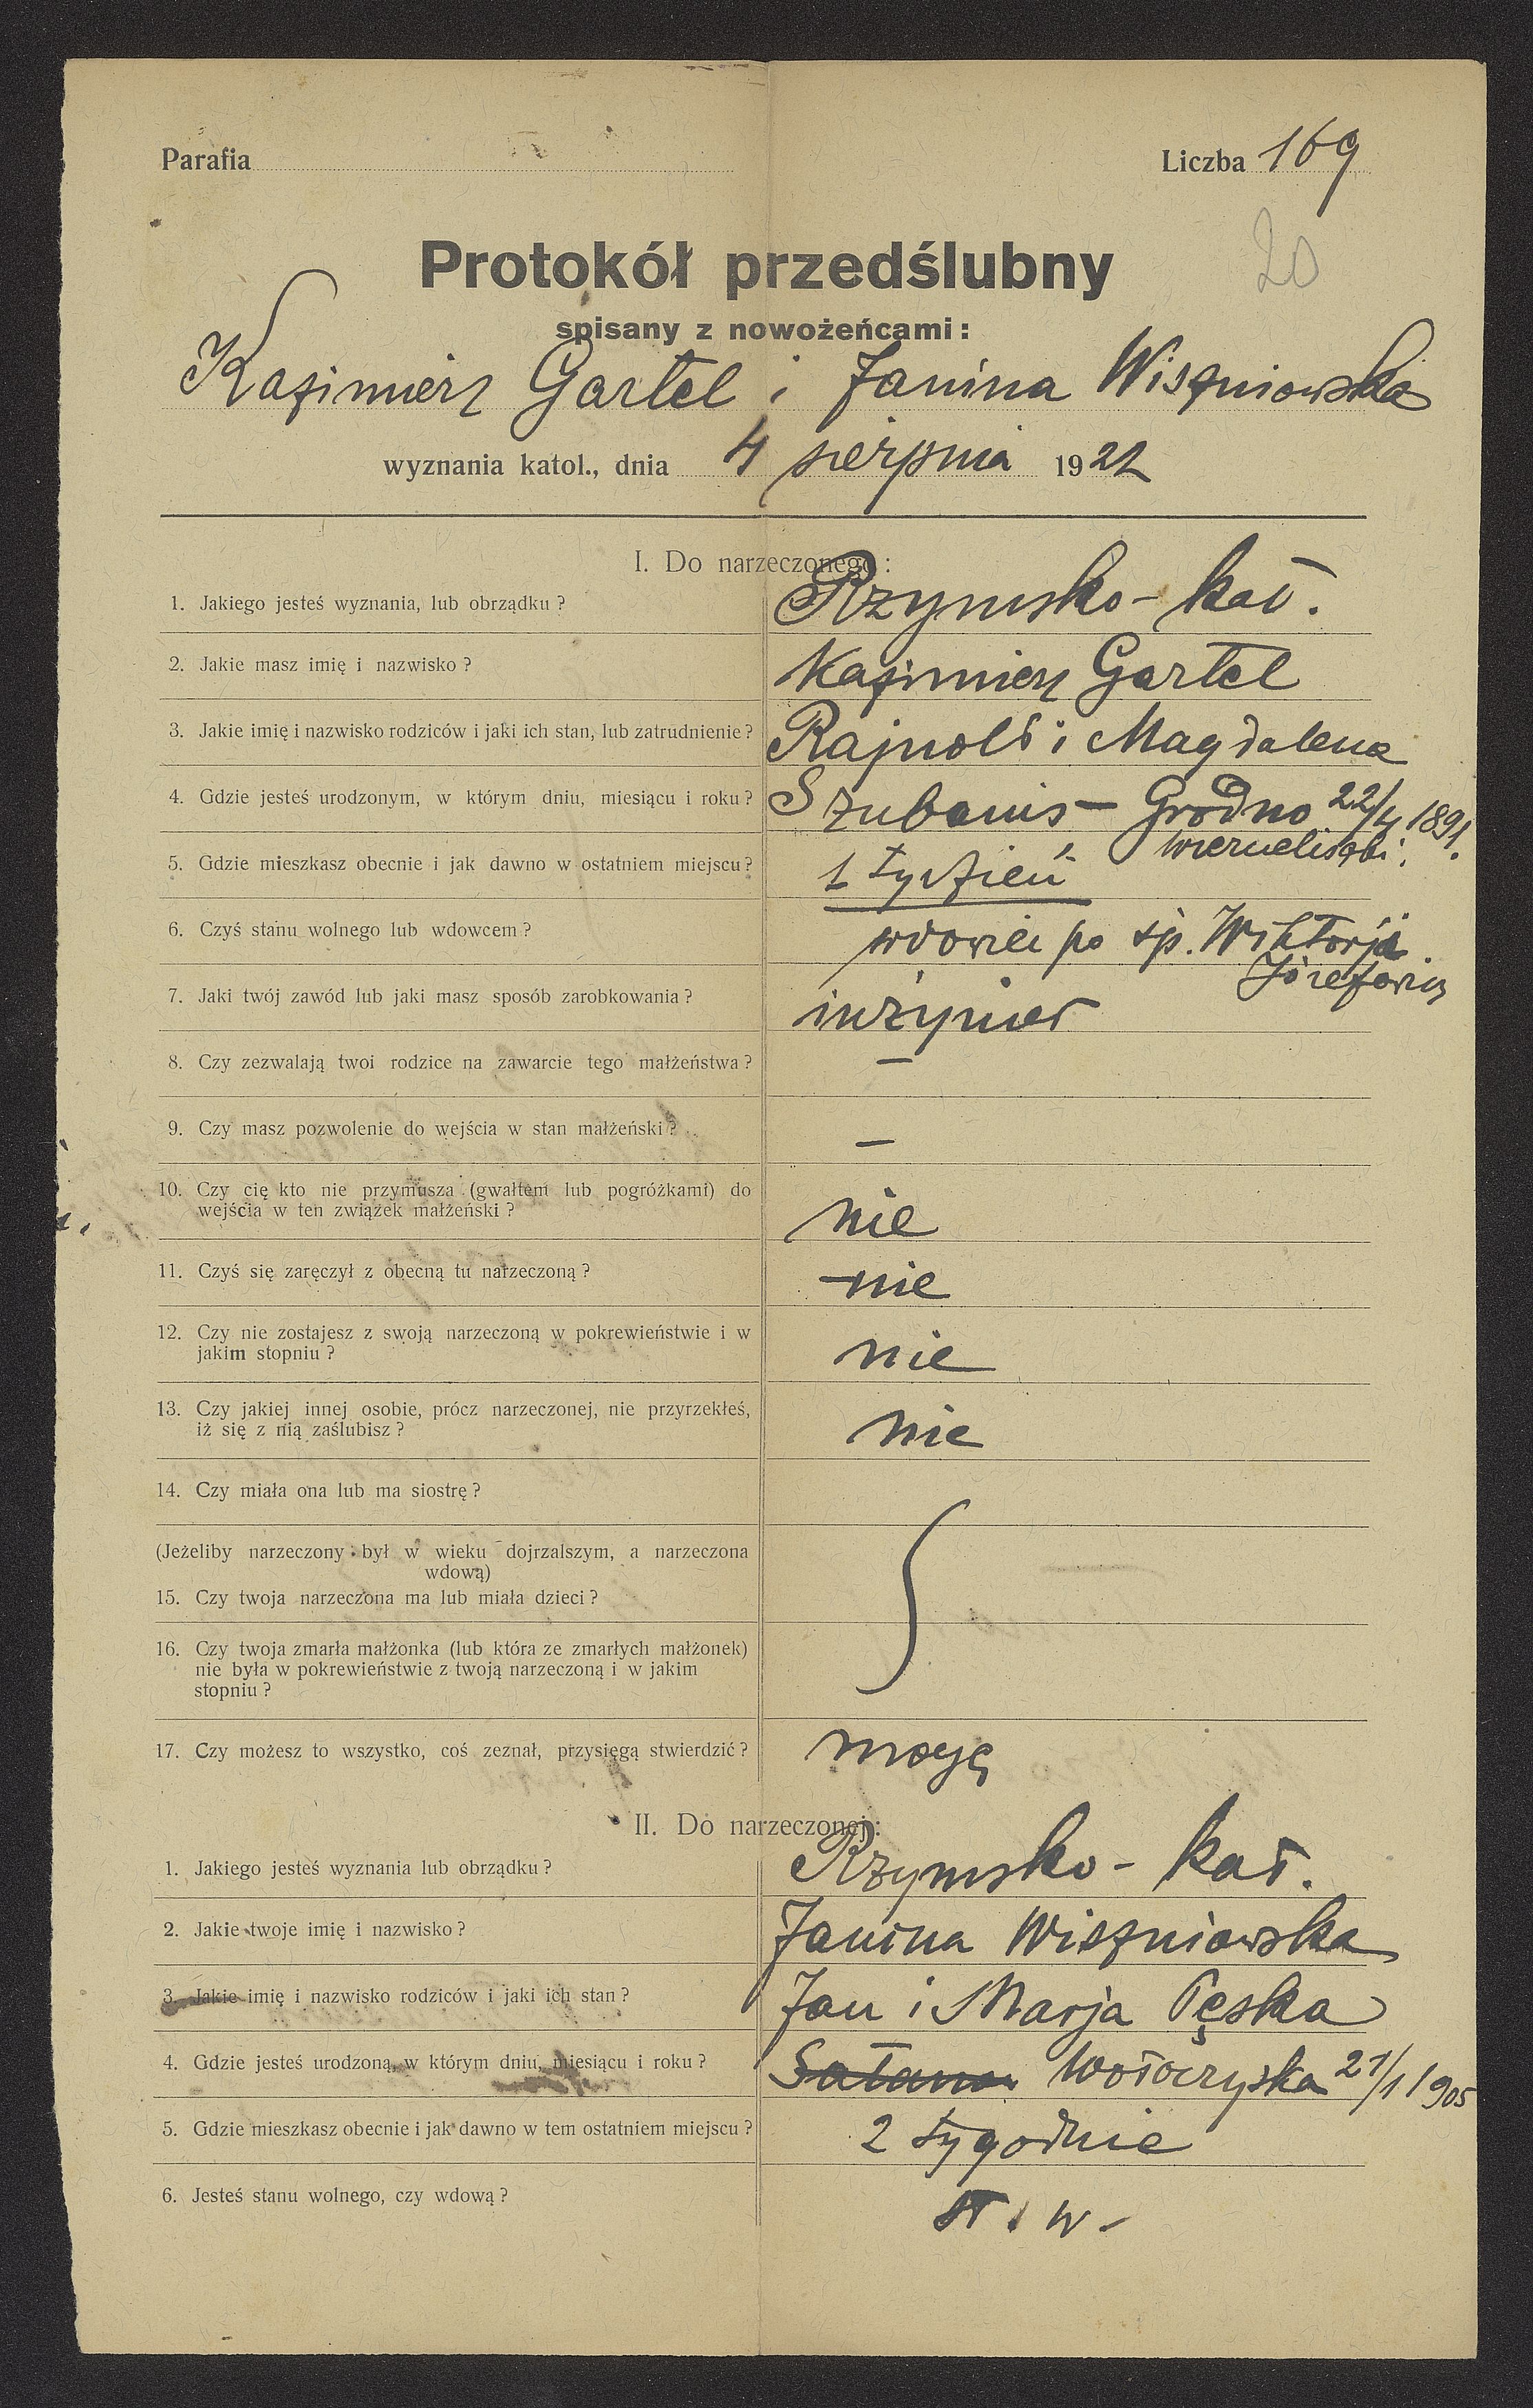 Parafia
Liczba 169
20
Protokół przedślubny
spisany z nowożeńcami:
Kazimierz Gartel i Janina Wiszniowska
wyznania katol., dnia 4 sierpnia 1922
I. Do narzeczonego:
1. Jakiego jesteś wyznania, lub obrządku? Rzymsko-kat.
2. Jakie masz imię i nazwisko? Kazimierz Gartel
3. Jakie imię i nazwisko rodziców i jaki ich stan, lub zatrudnienie? Rajnold i Magdalena
4. Gdzie jesteś urodzonym, w którym dniu, miesiącu i roku? Szubanis - Grodno 22/4 1891.
5. Gdzie mieszkasz obecnie i jak dawno w ostatniem miejscu? 1 tydzień
6. Czyś stanu wolnego lub wdowcem? wdowiec po śp. Wiktorji
Józefowicz
7. Jaki twój zawód lub jaki masz sposób zarobkowania? inżynier
8. Czy zezwalają twoi rodzice na zawarcie tego małżeństwa? —
9. Czy masz pozwolenie do wejścia w stan małżeński? —
10. Czy cię kto nie przymusza (gwałtem lub pogróżkami) do
wejścia w ten związek małżeński? nie
11. Czyś się zaręczył z obecną tu narzeczoną? nie
12. Czy nie zostajesz z swoją narzeczoną w pokrewieństwie i w
jakim stopniu? nie
13. Czy jakiej innej osobie, prócz narzeczonej, nie przyrzekłeś,
iż się z nią zaślubisz? nie
14. Czy miała ona lub ma siostrę?
(Jeżeliby narzeczony był w wieku dojrzalszym, a narzeczona
wdową)
15. Czy twoja narzeczona ma lub miała dzieci?
16. Czy twoja zmarła małżonka (lub która ze zmarłych małżonek)
nie była w pokrewieństwie z twoją narzeczoną i w jakim
stopniu?
17. Czy możesz to wszystko, coś zeznał, przysięgą stwierdzić? mogę
II. Do narzeczonej:
1. Jakiego jesteś wyznania lub obrządku? Rzymsko-kat.
2. Jakie twoje imię i nazwisko? Janina Wiszniowska
3. Jakie imię i nazwisko rodziców i jaki ich stan? Jan i Marja Pęska
4. Gdzie jesteś urodzoną, w którym dniu, miesiącu i roku? Wołoczyska 21/1 1905
5. Gdzie mieszkasz obecnie i jak dawno w tem ostatniem miejscu? 2 tygodnie
6. Jesteś stanu wolnego, czy wdową? st. w.